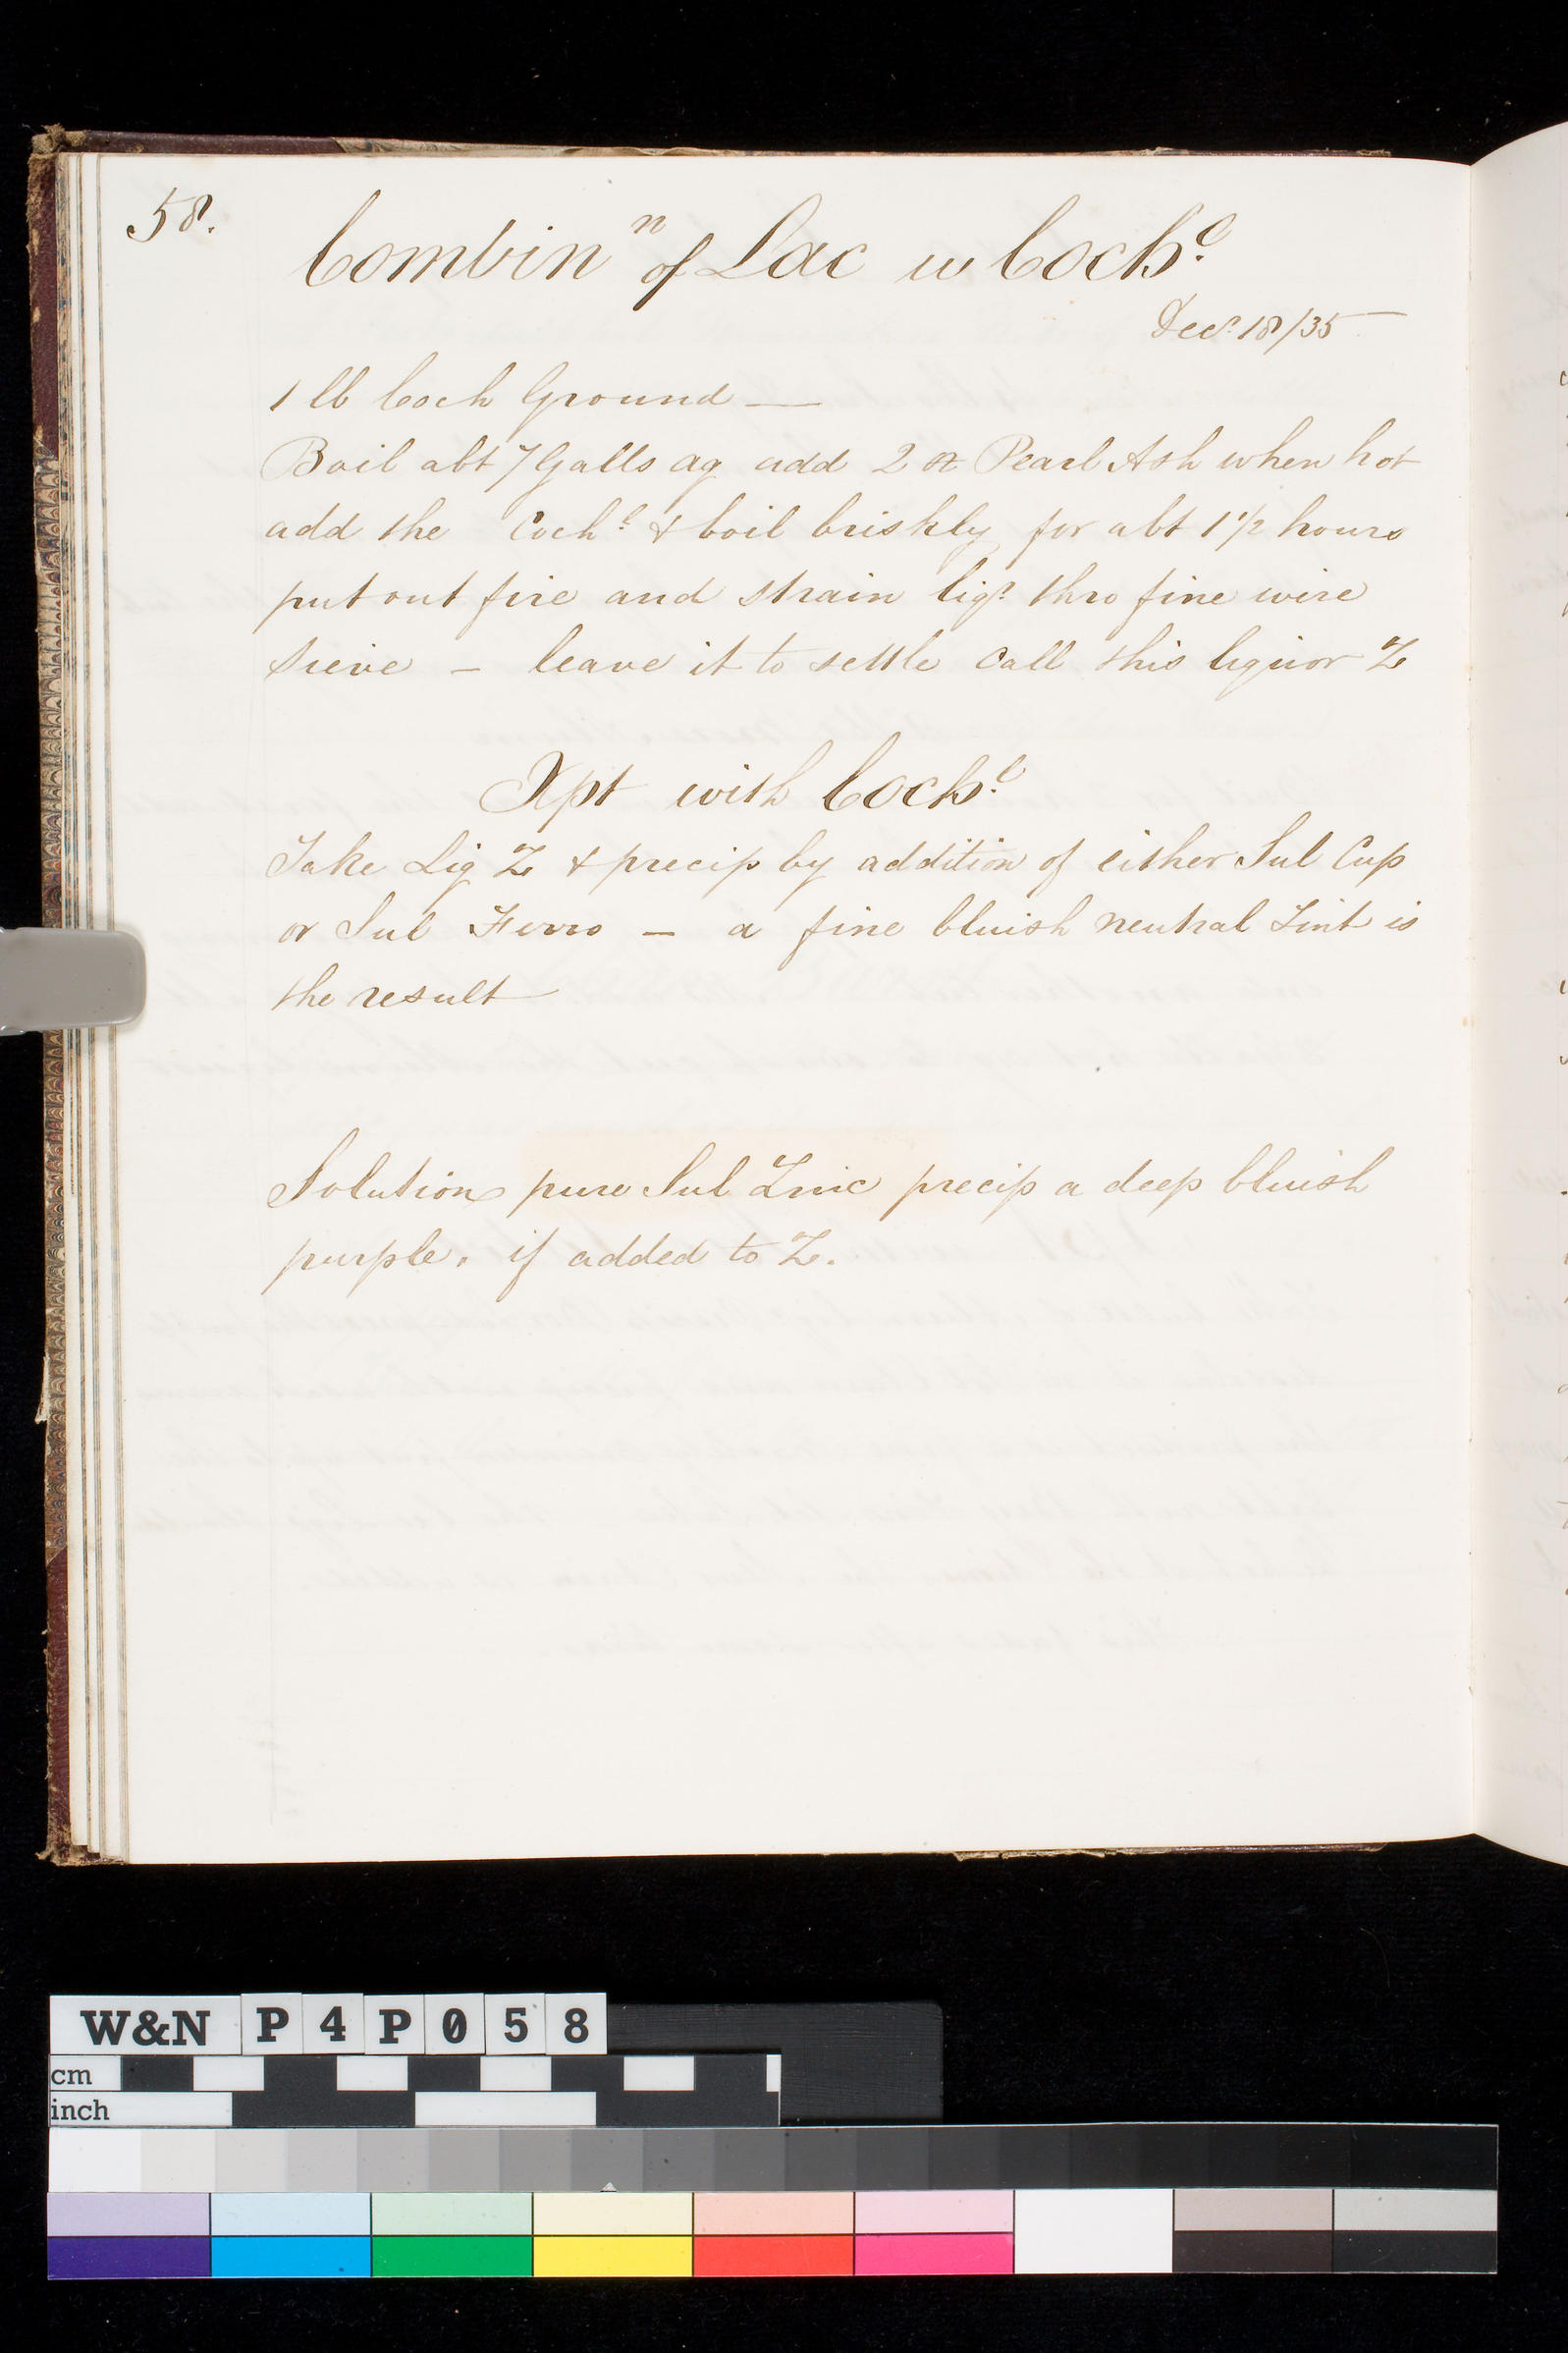 58.
Combinⁿ of Lac w Cochˡ
Decʳ 18/35
1 lb Coch Ground —
Boil abt 7 Galls aq add 2 oz Pearl Ash when hot
add the Cochˡ & boil briskly for abt 1 1/2 hours
put out fire and strain liqʳ thro fine wire
Sieve – leave it to settle Call this liquor Z
Xpt with Cochˡ
Take Liq Z & precip by addition of either Sul Cup
or Sul Ferro – a fine bluish neutral Tint is
the result
Solution pure Sul Zinc precip a deep bluish
purple. if added to Z.
W&N P4P058
cm
inch